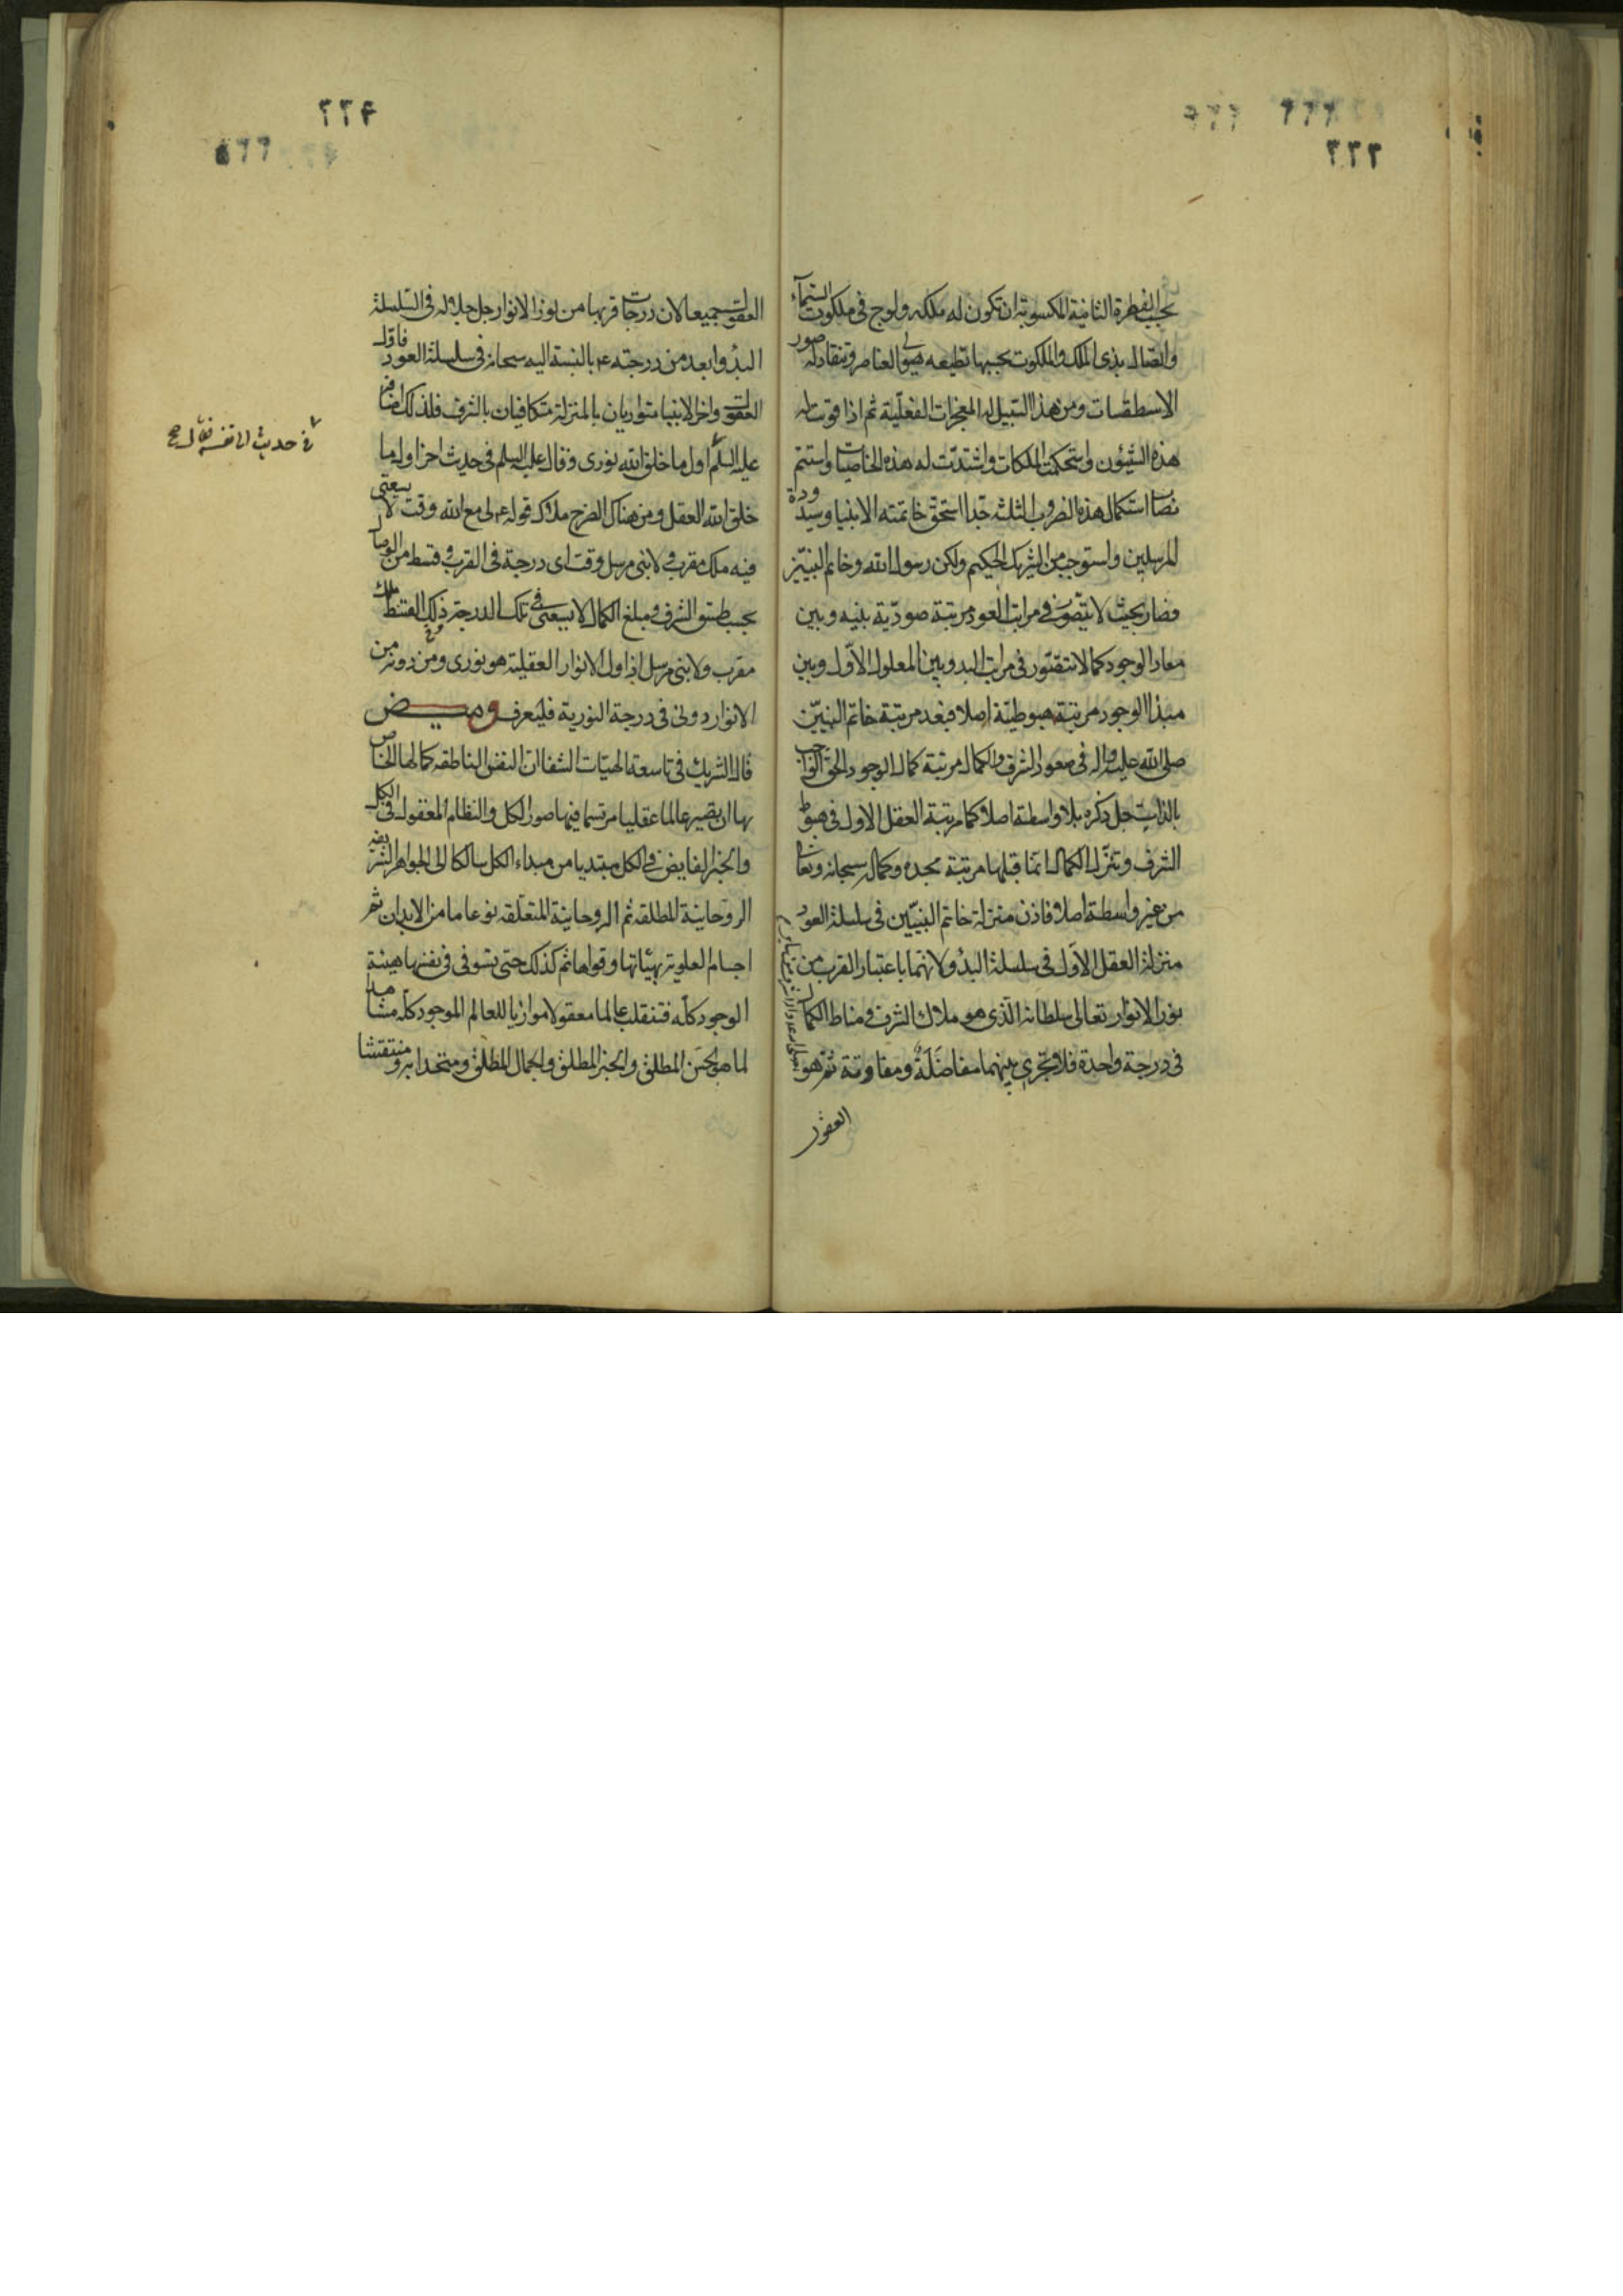 ٢٢٣
بحسب الفطرة الثانية المكسوبة ان تكون له ملكه ولوج فى ملكوت السّمآء
واتصال بذى الملك والملكوت بحسبها تطيعه هيولى العناصر وتنقاد له صور
الاسطقسات ومن هذا السّبيل له المعجزات الفعليّة ثم اذا قويت له
هذه الشئون واستحكمت الملكات واشتدّت له هذه الخاصيات واستتم
نصاب استكمال هذه الضروب الثلثه جدّا استحق خاتمته الانبيا وسيدودة
المرسلين واستوجب من الشريك الحكيم ولكن رسول الله وخاتم النبيّن
فصار بحيث لا يتصّور فى مراتب العود مرتبة صوديّة بينه وبين
معاد الوجود كما لا تتصّور فى مراتب البدو بين المعلول الاوّل وبين
مبدا الوجود مرتبة هبوطيّة اصلا فبعد مرتبة خاتم النبيّن
صلى الله عليه واله فى صعود الشرف والكمال مرتبة كمال الوجود الحق الواجب
بالذات جل ذكره بلا واسطة اصلا كما مرتبة العقل الاول فى هبوط
الشرف وتنزّل الكمال انما قبلها مرتبة مجده وكماله سبحانه وتعالى
من غير واسطة اصلا فاذن منزلة خاتم النبيّين فى سلسلة العود
منزلة العقل الاوّل فى سلسلة البدُو ولانهما باعتبار القرب من
نور الانوار تعالى سلطانه الّذى هو ملاك الشرف ومناط الكمال
فى درجة واحدة فلا تجرى بينهما مفاضَلَةٌ ومفاوتة ثمّ هو
العقول
٢٢٤
العقول جميعا لان درجات قربها من نور الانوار جل جلاله فى السّلسلة
البدُو ابعد من درجته ع بالنسبة اليه سبحانه فى سلسلة العود فاوّل
العقول واخر الانبيا متوازيان بالمنزلة متكافيان بالشرف فلذلك
عليه السلم اول ما خلق الله نورى وقال عليه السلم فى حديث اخر اول ما
خلق الله العقل ومن هناك انصرح ملاك قوله ع لى مع الله وقت لا يسعنى
فيه ملك مقرب ولا نبى مرسل وقت اى درجة فى القرب وقسط من الوصال
بحسب طسق الشرف ومبلغ الكمال لا يسعنى فى تلك الدرجة وذلك القسط ملك
مقرب ولا نبى مرسل اذ اول الانوار العقلية هو نورى ومن دونه من
الانوار دونى فى درجة النورية فليعرف وميض
قال الشريك فى تاسعة الهيّات الشفا ان النفس الناطقه كمالها الخاص
بها ان يصير عالما عقليا مرتسما فيها صور الكل والنظام المعقول فى الكل
والخير الفايض فى الكل مبتديا من مبداء الكل سالكا الى الجواهر الشريفه
الروحانيّة المطلقه ثم الروحانية المتعلّقه نوعا ما من الابدان ثم
اجسام العلوية بهيئاتها وقواها ثم كذلك حتى يستوفى فى نفسها هيئة
الوجود كلّه فتنقلب عالما معقولا موازيا للعالم الموجود كلّه مشاهدا
لما هو الحسن المطلق والخير المطلق والجمال المطلق ومتحدا به ومنتقشا